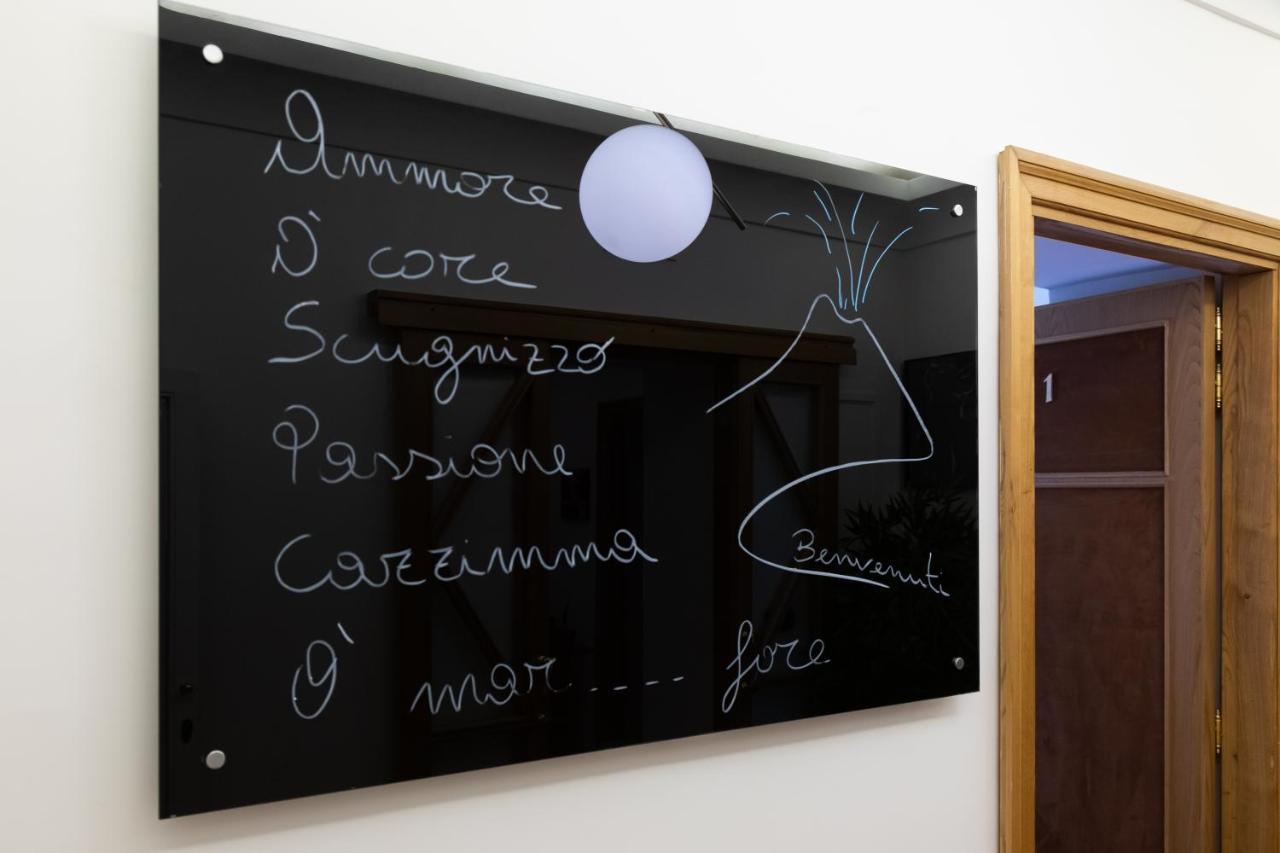 Ammore
O' core
Scugnizzo
Passione
Cazzimma
O' mar .... fore
Benvenuti
1